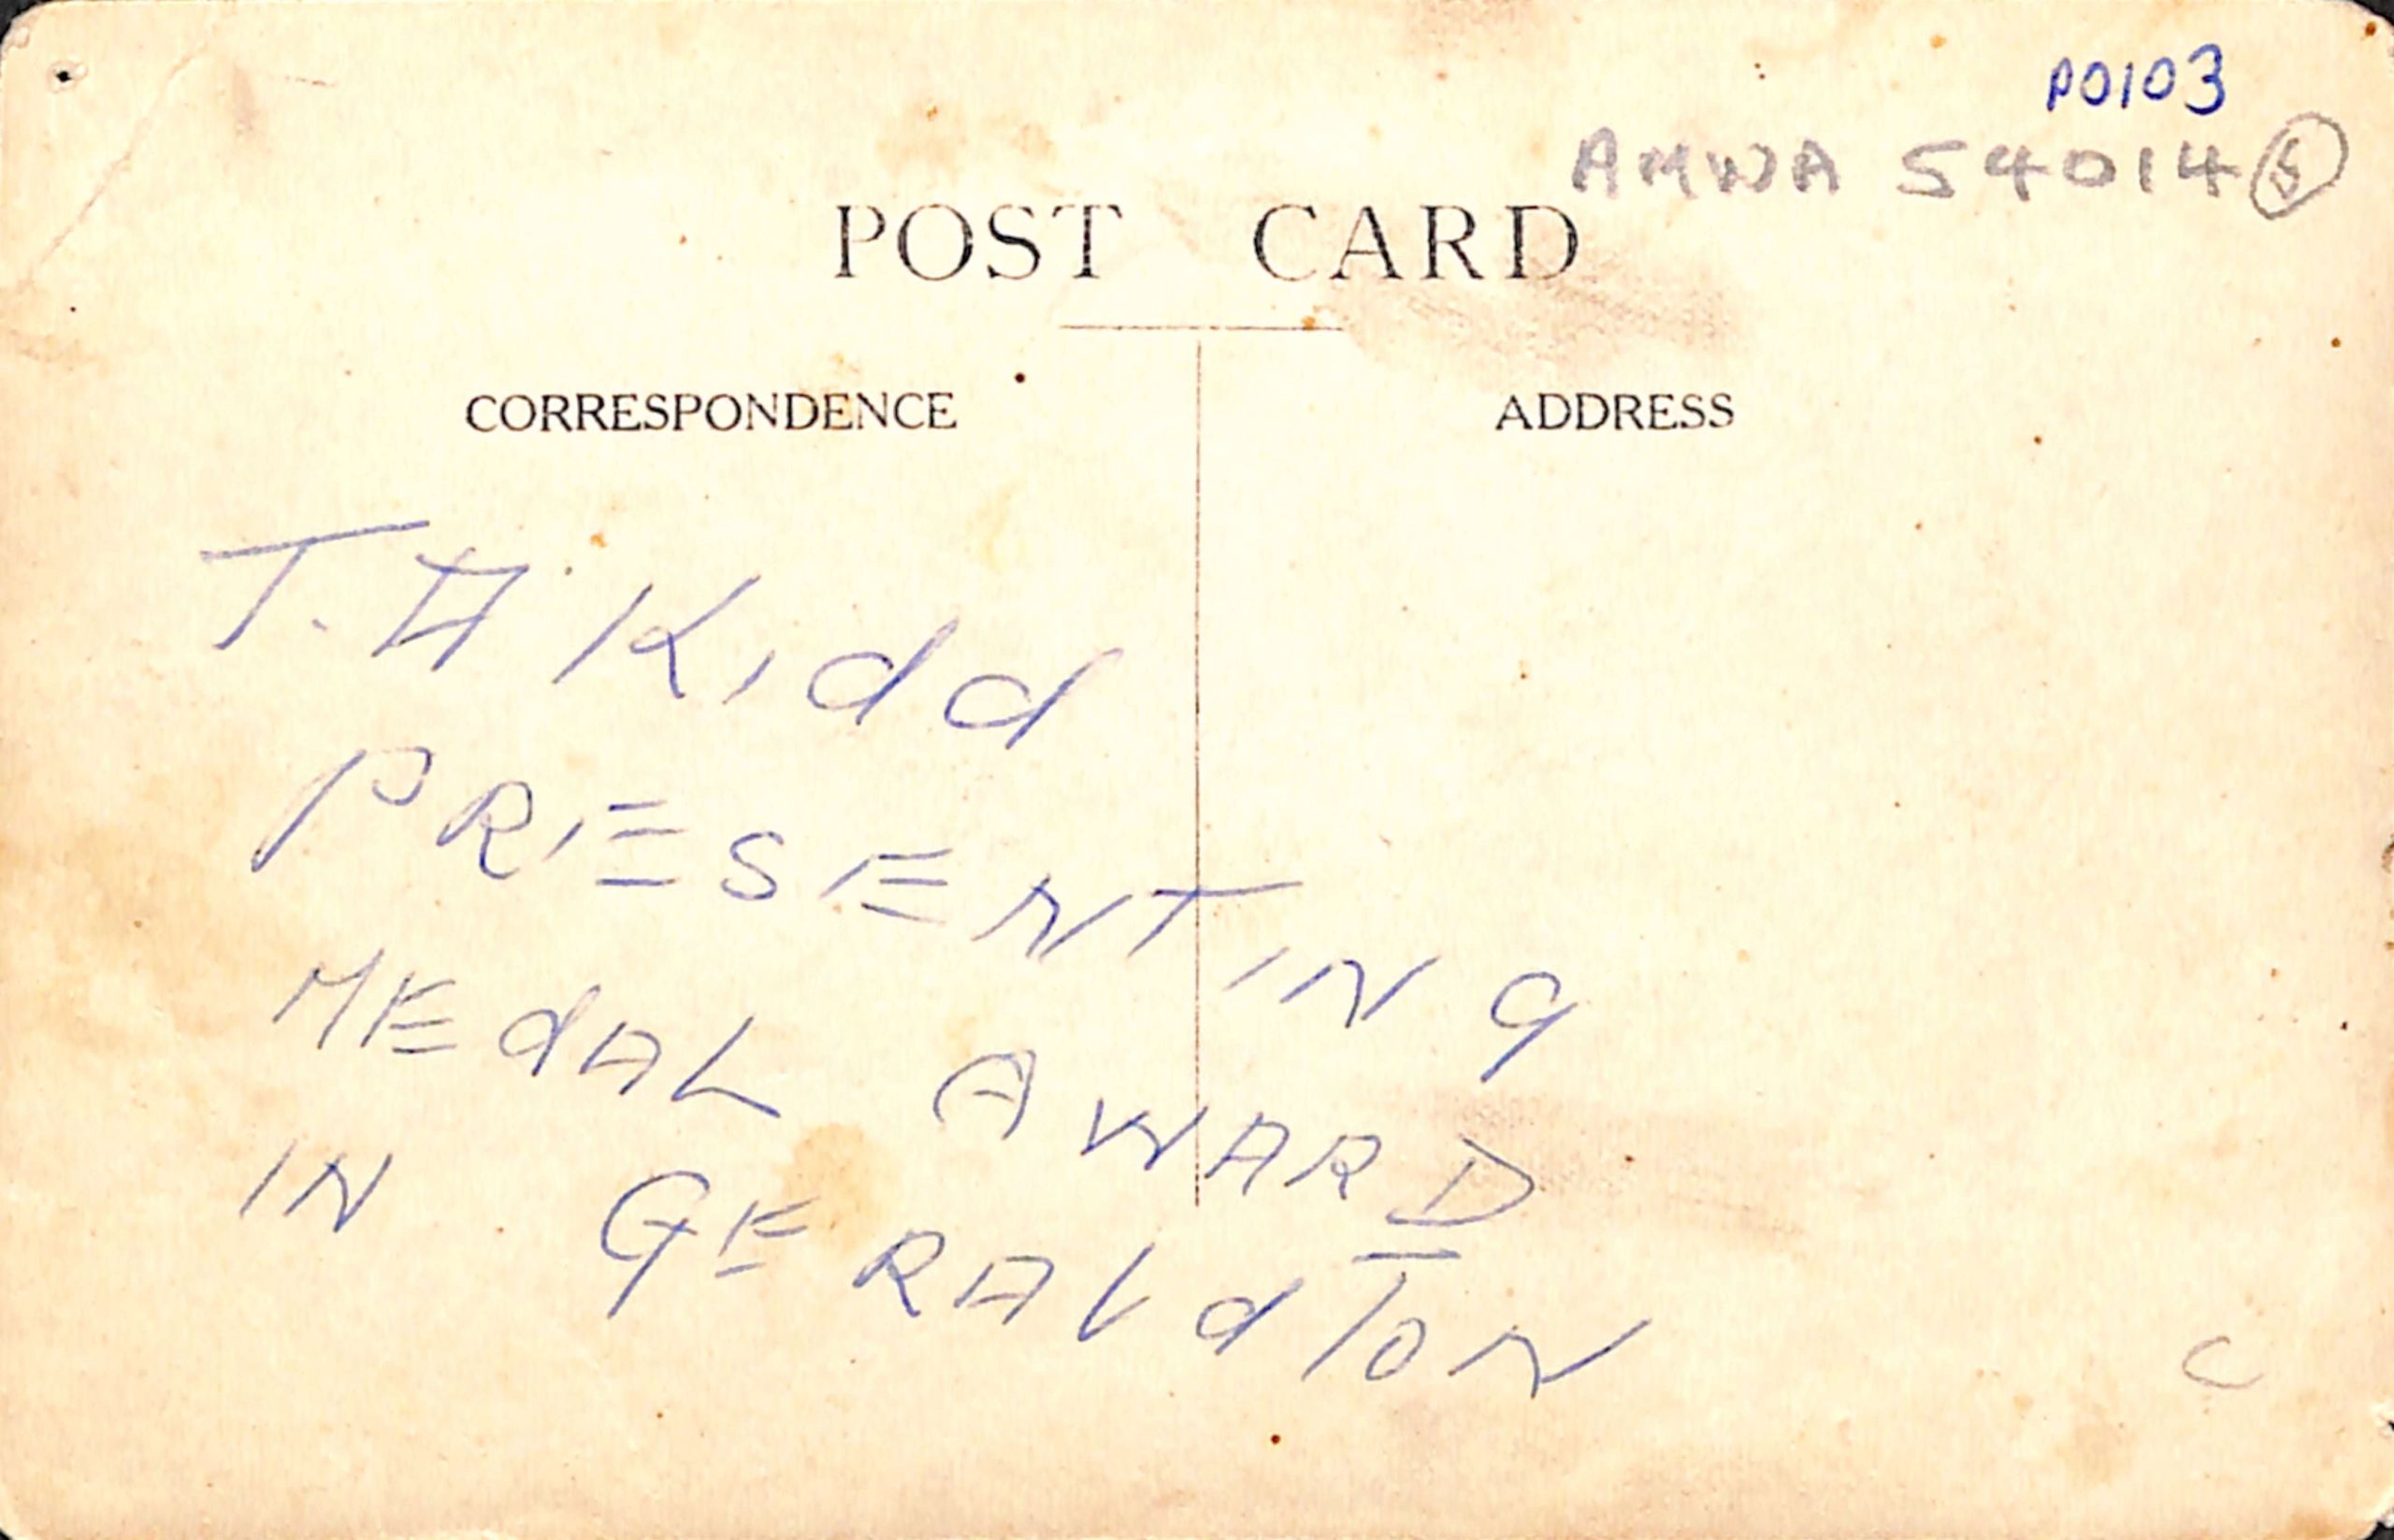 P0103
AMWA 54014 5
POST CARD
CORRESPONDENCE
ADDRESS
T. A Kidd
PRESENTING
MEdAL AWARD
IN GERALdTON
C